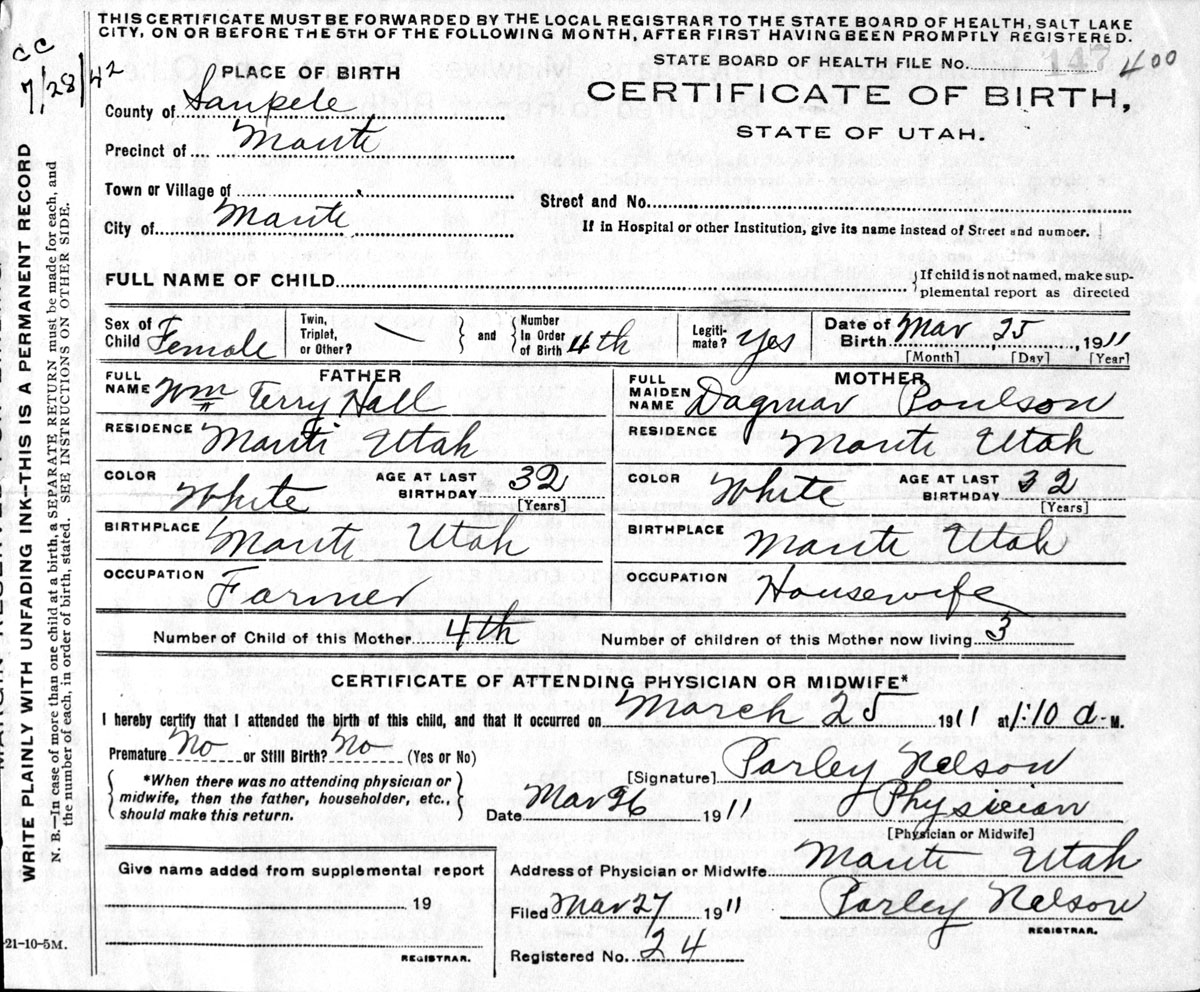 THIS CERTIFICATE MUST BE FORWARDED BY THE LOCAL REGISTRAR TO THE STATE BOARD OF HEALTH, SALT LAKE
CITY, ON OR BEFORE THE 5TH OF THE FOLLOWING MONTH, AFTER FIRST HAVING BEEN PROMPTLY REGISTERED.
CC
7/28/42
STATE BOARD OF HEALTH FILE NO. 147 400
PLACE OF BIRTH
CERTIFICATE OF BIRTH,
STATE OF UTAH.
County of Sanpete
Precinct of Manti
Town or Village of
City of Manti
Street and No.
If in Hospital or other Institution, give its name instead of Street and number.
FULL NAME OF CHILD
{If child is not named, make sup-
plemental report as directed
Sex of Child Female
Twin, Triplet, or Other? } and { Number In Order of Birth 4th
Legiti-mate? Yes
Date of Birth Mar 25, 1911
[Month] [Day] [Year]
FATHER
FULL NAME Wm Terry Hall
RESIDENCE Manti Utah
COLOR White AGE AT LAST BIRTHDAY 32
[Years]
BIRTHPLACE Manti Utah
OCCUPATION Farmer
MOTHER
FULL MAIDEN NAME Dagmar Poulson
RESIDENCE Manti Utah
COLOR White AGE AT LAST BIRTHDAY 32
[Years]
BIRTHPLACE Manti Utah
OCCUPATION Housewife
Number of Child of this Mother 4th Number of children of this Mother now living 3
CERTIFICATE OF ATTENDING PHYSICIAN OR MIDWIFE*
I hereby certify that I attended the birth of this child, and that it occurred on March 25 1911 at 1:10 a-M.
Premature No or Still Birth? No (Yes or No)
{ *When there was no attending physician or
midwife, then the father, householder, etc.,
should make this return. }
[Signature] Parley Nelson
Date Mar 26 1911 Physician
[Physician or Midwife]
Address of Physician or Midwife Manti Utah
Filed Mar 27 1911 Parley Nelson
REGISTRAR.
Registered No. 24
Give name added from supplemental report
19
REGISTRAR.
-21-10-5M.
WRITE PLAINLY WITH UNFADING INK-THIS IS A PERMANENT RECORD
N. B.—In case of more than one child at a birth, a SEPARATE RETURN must be made for each, and
the number of each, in order of birth, stated. SEE INSTRUCTIONS ON OTHER SIDE.